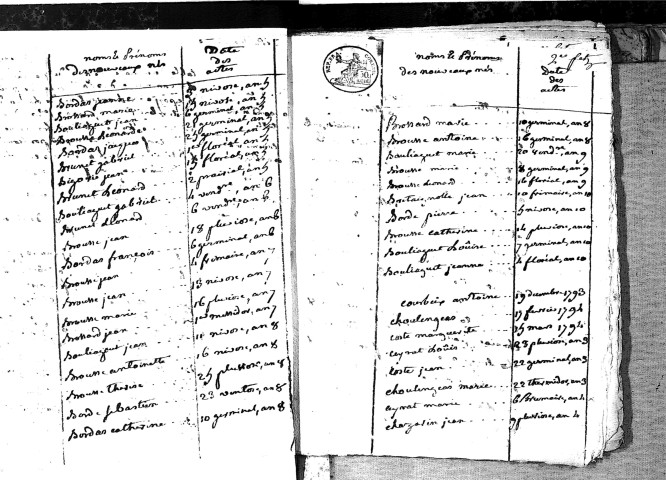 noms & prénoms
des nouveaux nés
Date
des
actes
Bordas jeanne nivose, an 5
Brissard marie nivose, an 5
Bouliaguet jean germinal, an 5
Brousse Léonarde germinal, an 5
Bordas jacques germinal, an 5
Brunet gabriel floréal, an 5
jeanne floréal, an 5
Brunet Léonard prairial, an 5
Bouliaguet gabriel 4 vendre, an 6
Brunet Léonard 6 vendre, an 6
Brousse jean 18 pluviose, an 6
Bordas françois 6 germinal, an 6
Brousse jean 4 frimaire, an 7
Brousse jean 13 nivose, an 7
Brousse marie 16 pluviose, an 7
Brossard jean messidor, an 7
Bouliaguet jean 14 nivose, an 8
Brousse antoinette 16 nivose, an 8
Brousse therese 25 pluviose, an 8
Borde sebastien 23 ventose, an 8
Bordas catherine 10 germinal, an 8
noms & Prénoms
des nouveaux nés
Date
des
actes
Brossard marie 10 germinal, an 8
Brousse antoine 16 germinal, an 8
Bouliaguet marie 20 vendre, an 9
Brousse marie 8 germinal, an 9
Brousse léonard 16 floréal, an 9
jean 10 frimaire, an 10
Borde pierre 5 nivose, an 10
Brousse catherine 14 pluviose, an 10
Bouliaguet Louise 7 germinal, an 10
Bouliaguet jeanne 4 floréal, an 10
courbeix antoine 19 decembre 1793
choulengeas 17 fevrier 1794
coste marguerite 15 mars 1794
ceyrat Louis 23 pluviose, an 3
Coste jean 22 germinal, an 3
choulengeas marie 22 thermidor, an 3
ceyrat marie 6 brumaire, an 4
chazarin jean 9 pluviose, an 4